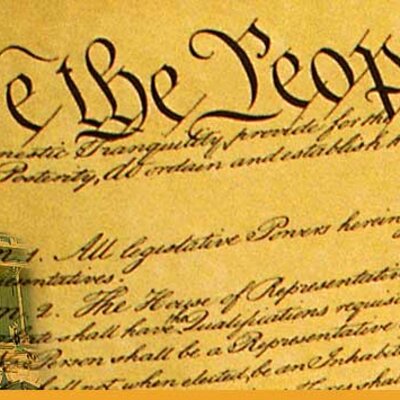 e the Peop
mestic Tranquility, provide for the
Posterity, do ordain and establish
1. All legislative Powers herein
sentatives.
2. The House of Representati
shall have the Qualifications requisi
Person shall be a Representative
shall not when elected, be an Inhabit